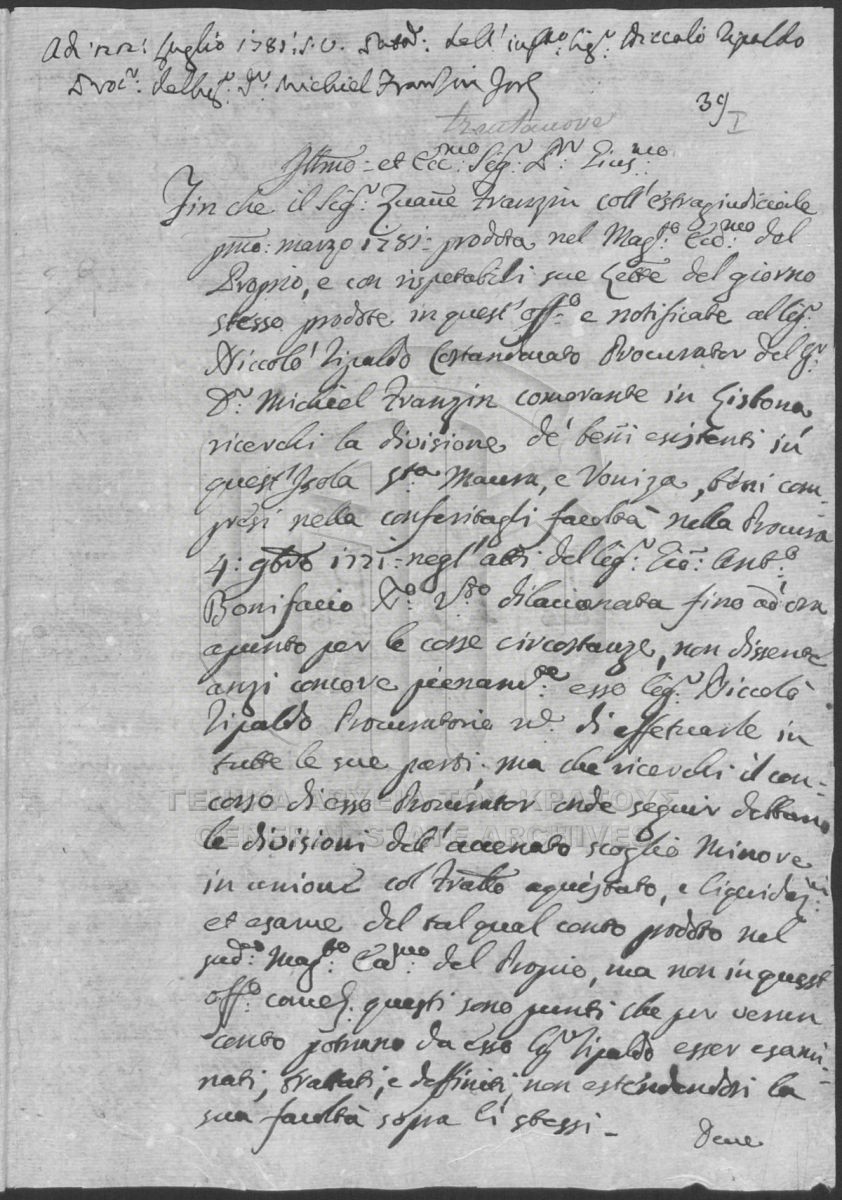 Ad: 22: Luglio 1781: S.V. Prod.ta dell'infr.to Sig.r Niccolò Zipaldo
Proc.r del Sig.r D.r Michiel Franzin
39
I
trentanove
Illmo: et Ecc.mo Sig.r D.r
Fin che il Sig.r Zuanne Franzin coll'estragiudiciale
pmo: marzo 1781: prodota nel Mag.to Ecc.mo del
Proprio, e con rispetabili sue Lettere del giorno
stesso prodote in quest'off.o e notificate al Sig.r
Niccolò Zipaldo Costandinato Procurator del S.r
D.r Michiel Franzin comorante in Lisbona,
ricerchi la divisione de' beni esistenti in
quest'Isola S.ta Maura, e Voniza, beni com-
presi nella conferitagli facoltà nella Procura
4: 9bre 1771: negl'atti del Sig.r Ecc: Ant.o
Bonifacio N.o V.to dilacionata fino ad ora
apunto per le corse circostanze, non dissente
anzi concore pienam.te esso Sig.r Niccolò
Zipaldo Procuratorio n.e di effetuarle in
tutte le sue parti; ma che ricerchi il con-
corso di esso Procurator onde seguir debbano
le divisioni dell'accenato scoglio Minore
in unione col Fratello aquistato, e liquidaz.ni
et esame del tal qual conto prodoto nel
sud.o Mag.to Ecc.mo del Proprio, ma non in quest'
off.o questi sono punti che per verun
conto potrano da esso Sig.r Zipaldo esser esami-
nati, trattati, e deffiniti, non estendendosi la
sua facoltà sopra li stessi -
Deve
ΓΕΝΙΚΑ ΑΡΧΕΙΑ ΤΟΥ ΚΡΑΤΟΥΣ
GENERAL STATE ARCHIVES